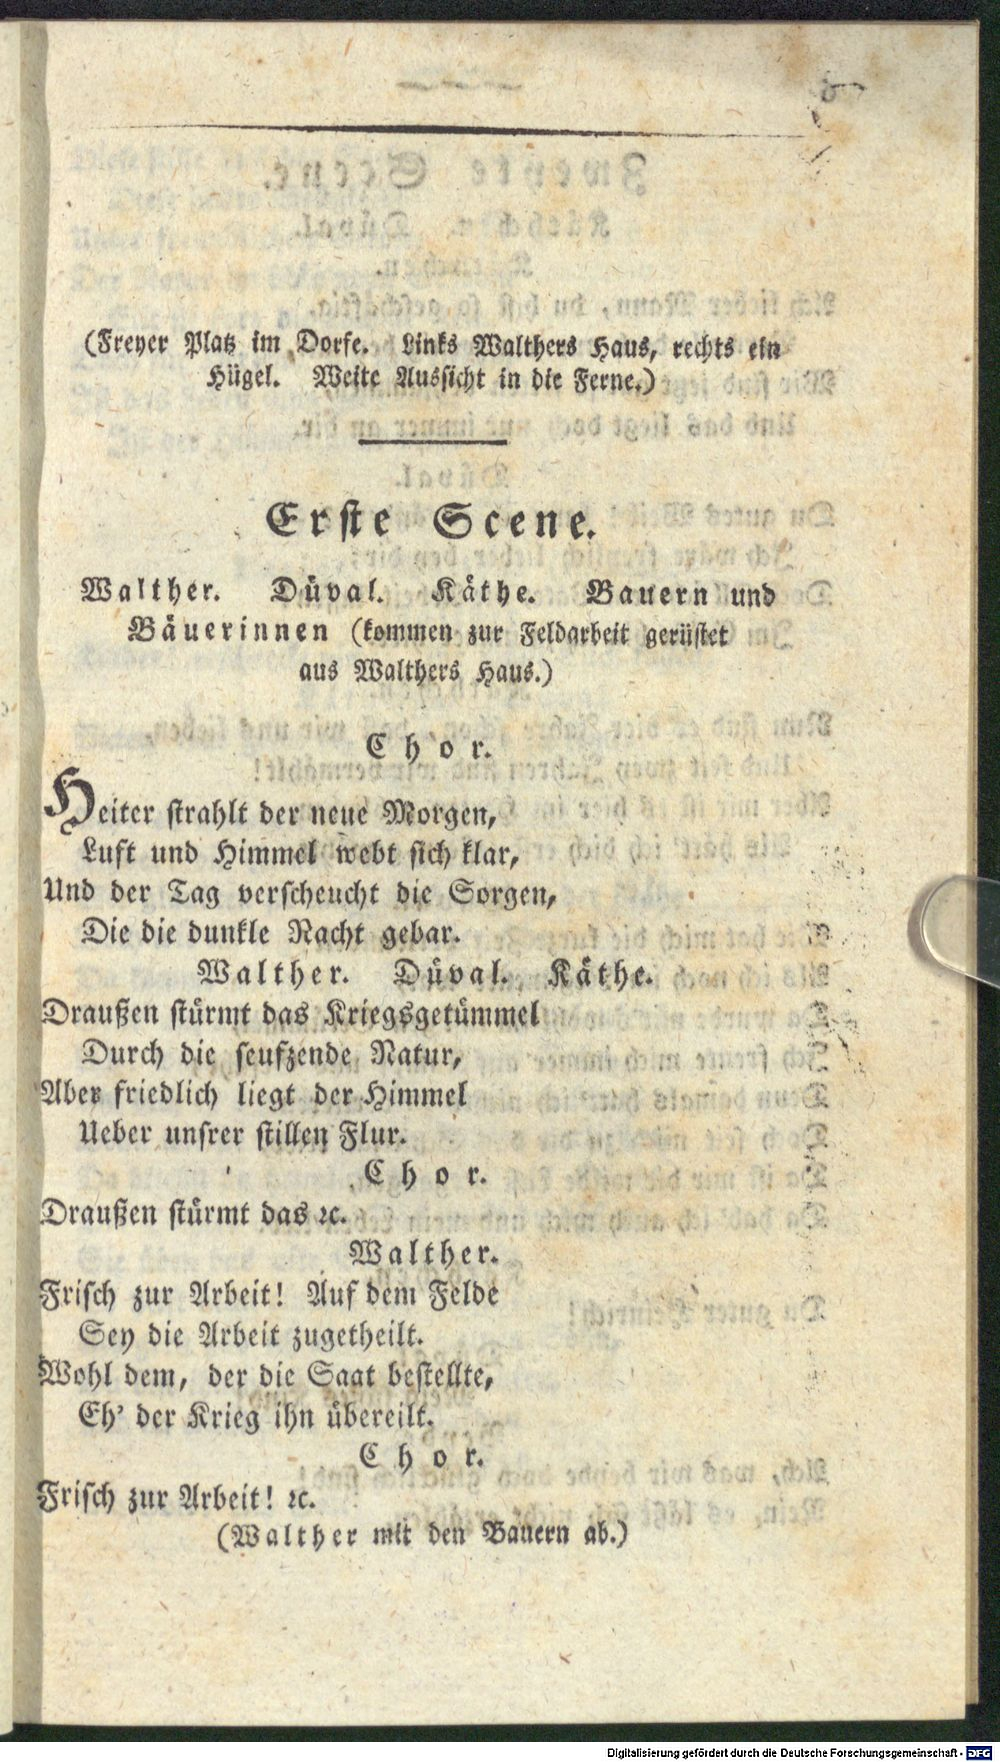 (Freyer Platz im Dorfe. Links Walthers Haus, rechts ein
Hügel. Weite Aussicht in die Ferne.)
Erste Scene.
Walther. Düval. Käthe. Bauern und
Bäuerinnen (kommen zur Feldarbeit gerüstet
aus Walthers Haus.)
Chor.
Heiter strahlt der neue Morgen,
Luft und Himmel webt sich klar,
Und der Tag verscheucht die Sorgen,
Die die dunkle Nacht gebar.
Walther. Düval. Käthe.
Draußen stürmt das Kriegsgetümmel
Durch die seufzende Natur,
Aber friedlich liegt der Himmel
Ueber unsrer stillen Flur.
Chor.
Draußen stürmt das ꝛc.
Walther.
Frisch zur Arbeit! Auf dem Felde
Sey die Arbeit zugetheilt.
Wohl dem, der die Saat bestellte,
Eh' der Krieg ihn übereilt.
Chor.
Frisch zur Arbeit! ꝛc.
(Walther mit den Bauern ab.)
Digitalisierung gefördert durch die Deutsche Forschungsgemeinschaft - DFG